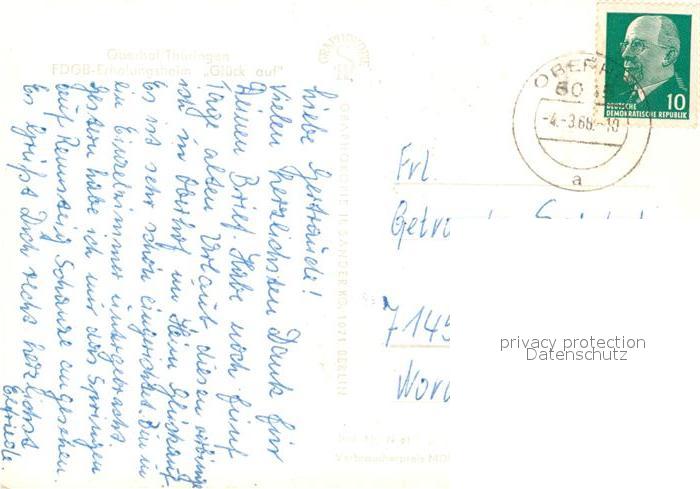 Oberhof Thüringen
FDGB-Erholungsheim „Glück auf“
Liebe Gertraude!
Vielen herzlichsten Dank für
Deinen Brief. Habe noch fünf
Tage alten Urlaub diesen verbringe
ich im Oberhof im Heim Glückauf.
Es ist sehr schön eingerichtet. Bin in
ein Einzelzimmer untergebracht.
Gestern habe ich mir das Springen
auf Rennsteig Schanze angesehen.
Es grüßt Dich recht herzlichst
Elfriede.
GRAPHOKOPIE
GRAPHOKOPIE H. SANDER KG, 1071 BERLIN
Verbraucherpreis MD
OBERH
60
-4.-3.68.-10
a
10
DEUTSCHE
DEMOKRATISCHE REPUBLIK
Frl.
Getra
7145
privacy protection
Datenschutz